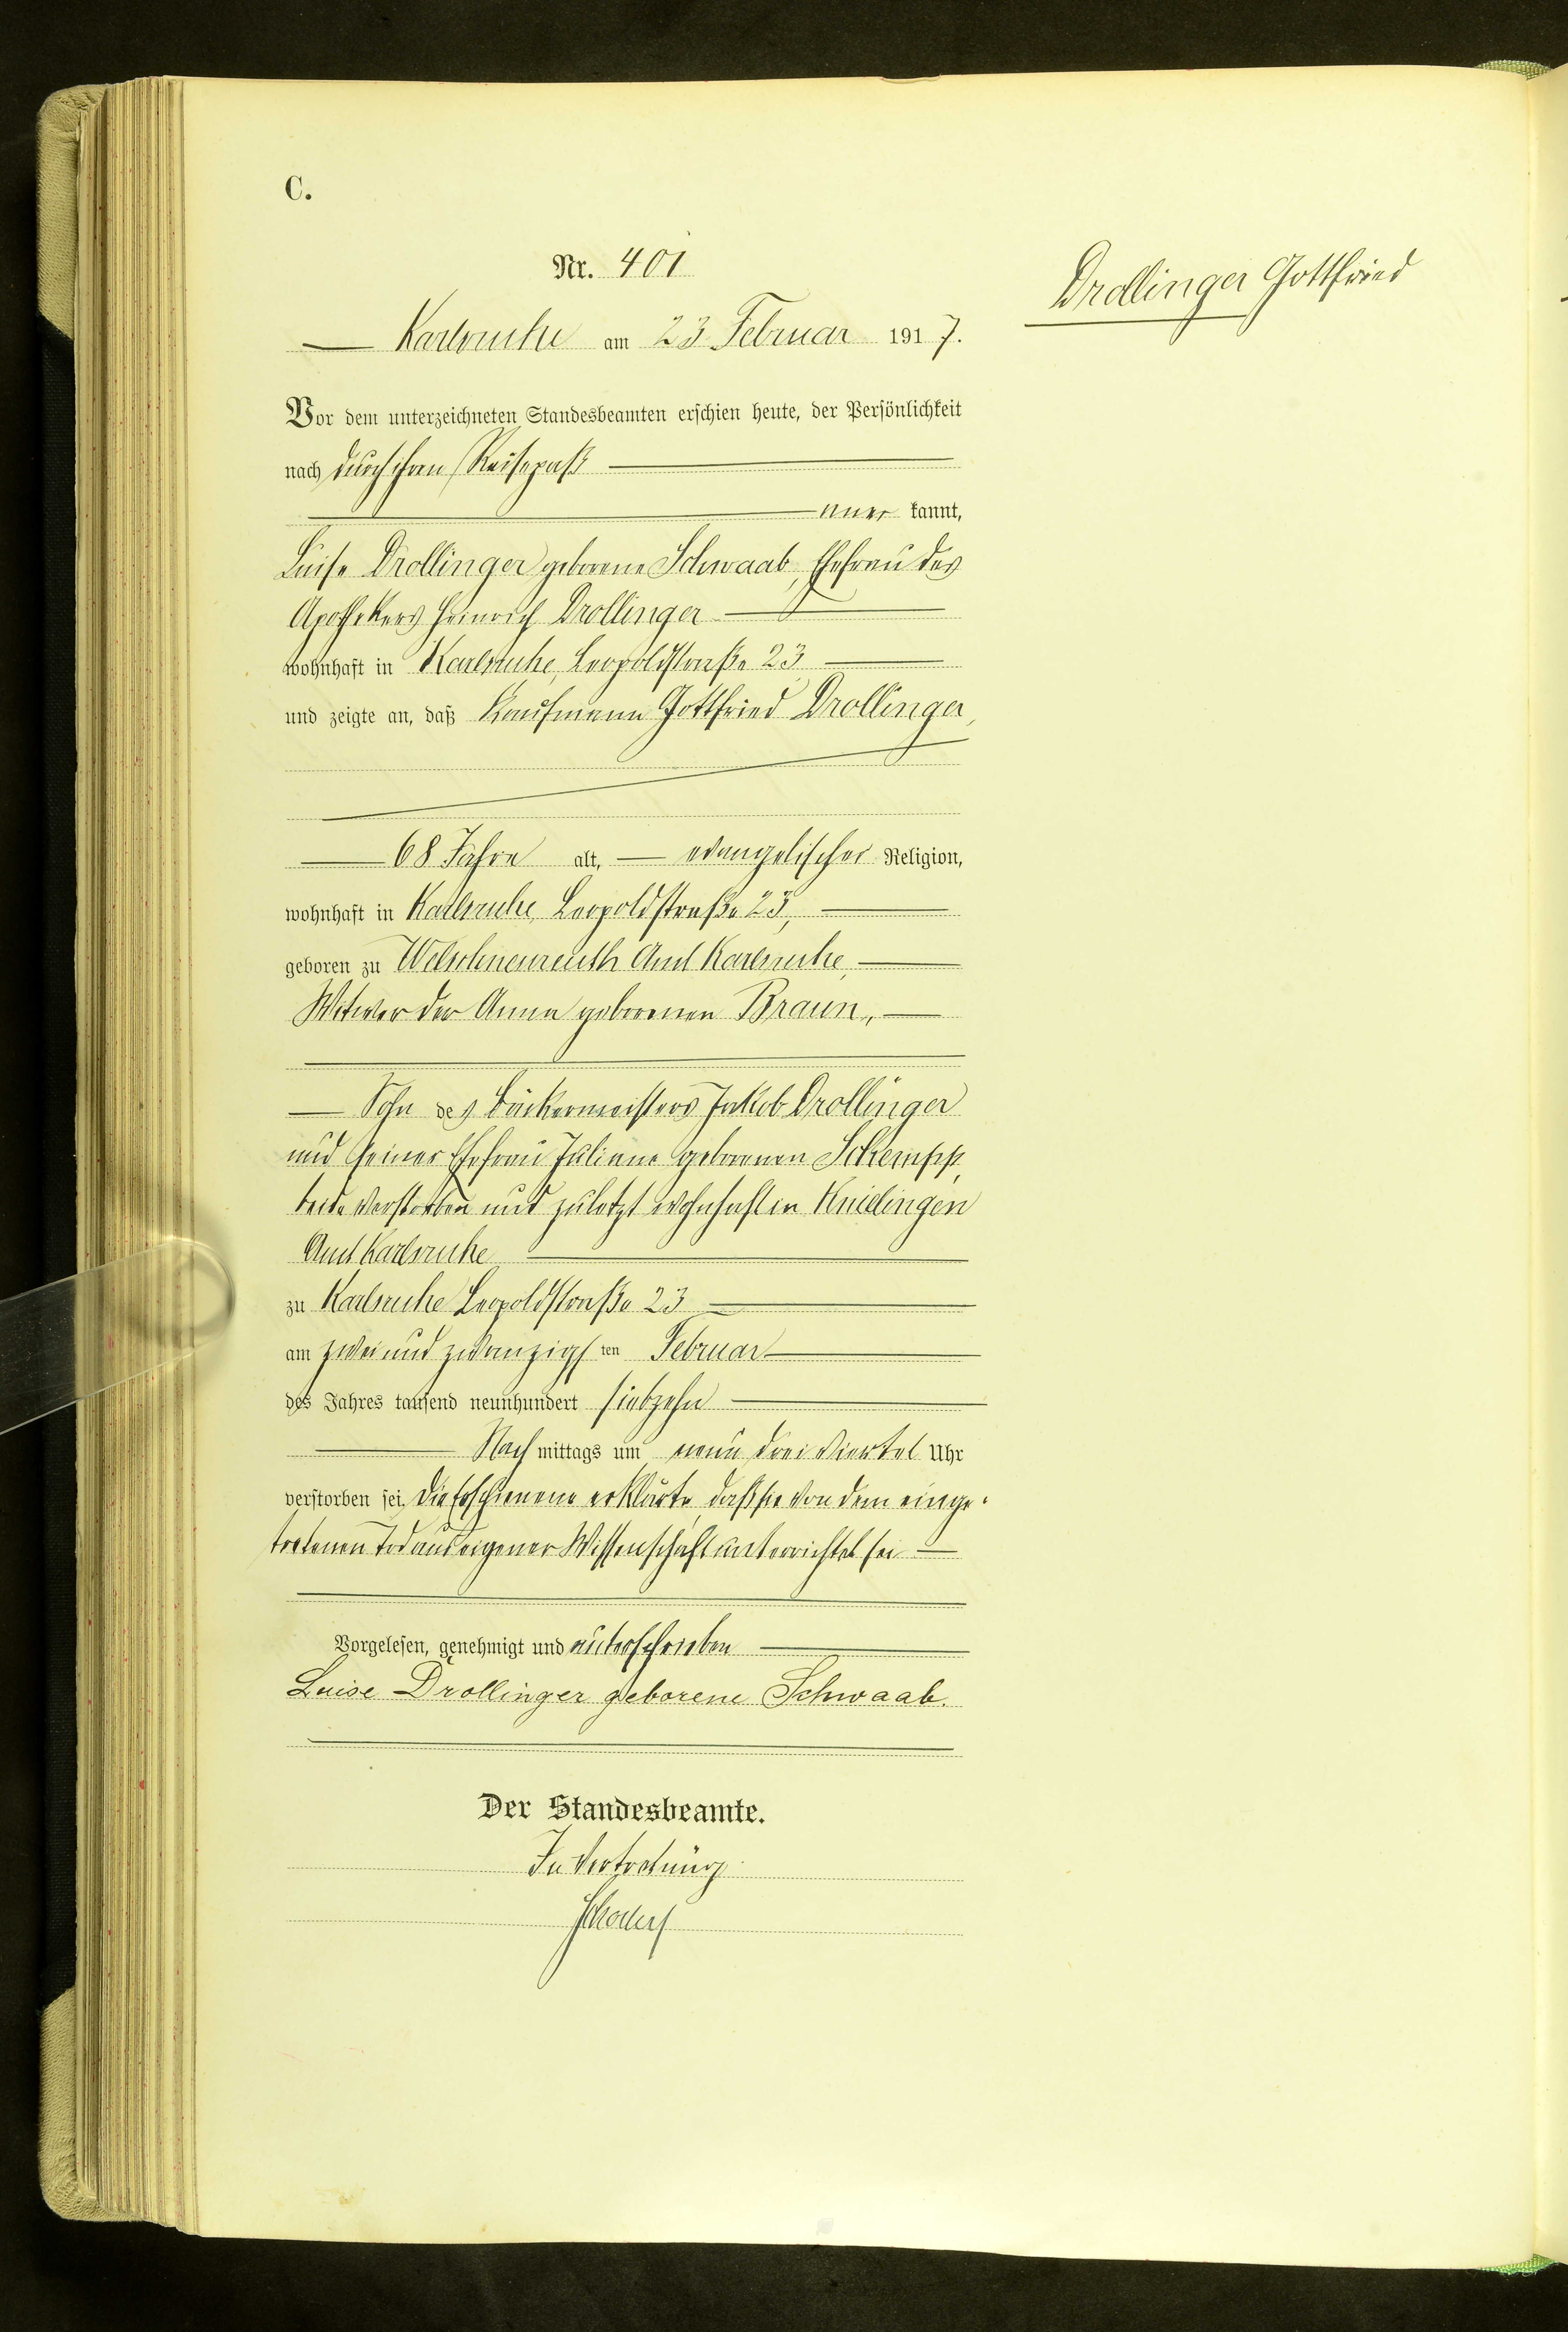 C.
Nr. 401
Drollinger Gottfried
Karlsruhe am 23. Februar 1917.
Vor dem unterzeichneten Standesbeamten erschien heute, der Persönlichkeit
nach durch ihren Reisepaß
aner kannt,
Luise Drollinger geborene Schwaab, Ehefrau des
Apothekers Heinrich Drollinger
wohnhaft in Karlsruhe, Leopoldstraße 23
und zeigte an, daß Kaufmann Gottfried Drollinger,
68 Jahre alt, evangelischer Religion,
wohnhaft in Karlsruhe, Leopoldstraße 23,
geboren zu Welschneureuth Amt Karlsruhe,
Witwer der Anna geborenen Braun,
Sohn des Bäckermeisters Jakob Drollinger
und seiner Ehefrau Juliane geborenen Schempp,
beide verstorben und zuletzt wohnhaft in Knielingen
Amt Karlsruhe
zu Karlsruhe Leopoldstraße 23
am zwei und zwanzigs ten Februar
des Jahres tausend neunhundert siebzehn
Nach mittags um neun drei Viertel Uhr
verstorben sei. Die Erschienene erklärte, daß sie von dem einge-
tretenen Tod aus eigener Wissenschaft unterrichtet sei
Vorgelesen, genehmigt und unterschrieben
Luise Drollinger geborene Schwaab.
Der Standesbeamte.
In Vertretung